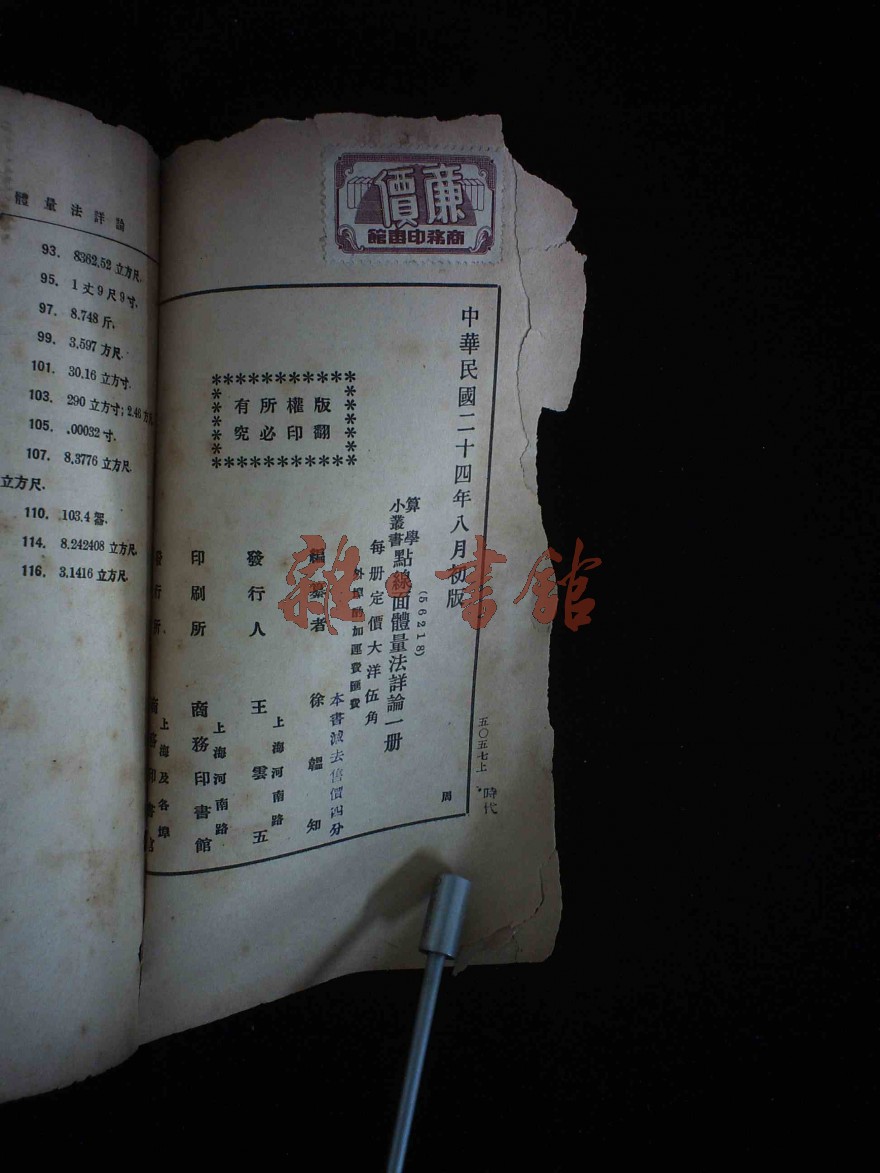 體量法詳論
93. 8362.52 立方尺.
95. 1 丈 9 尺 9 寸.
97. 8.748 斤.
99. 3.597 方尺.
101. 30.16 立方寸.
103. 290 立方寸; 2.46
105. .00032 寸.
107. 8.3776 立方尺.
立方尺.
110. 103.4 磅.
114. 8.242408 立方尺.
116. 3.1416 立方尺.
廉價
商務印書館
中華民國二十四年八月初版
(56218)
算學小叢書 點線面體量法詳論一册
每册定價大洋伍角
外埠酌加運費匯費
本書減去售價四分
版權所有
翻印必究
編纂者 徐韞知
發行人 王雲五
上海河南路
印刷所 商務印書館
上海河南路
發行所 商務印書館
上海及各埠
五〇五七上
時代
周
雜·書館